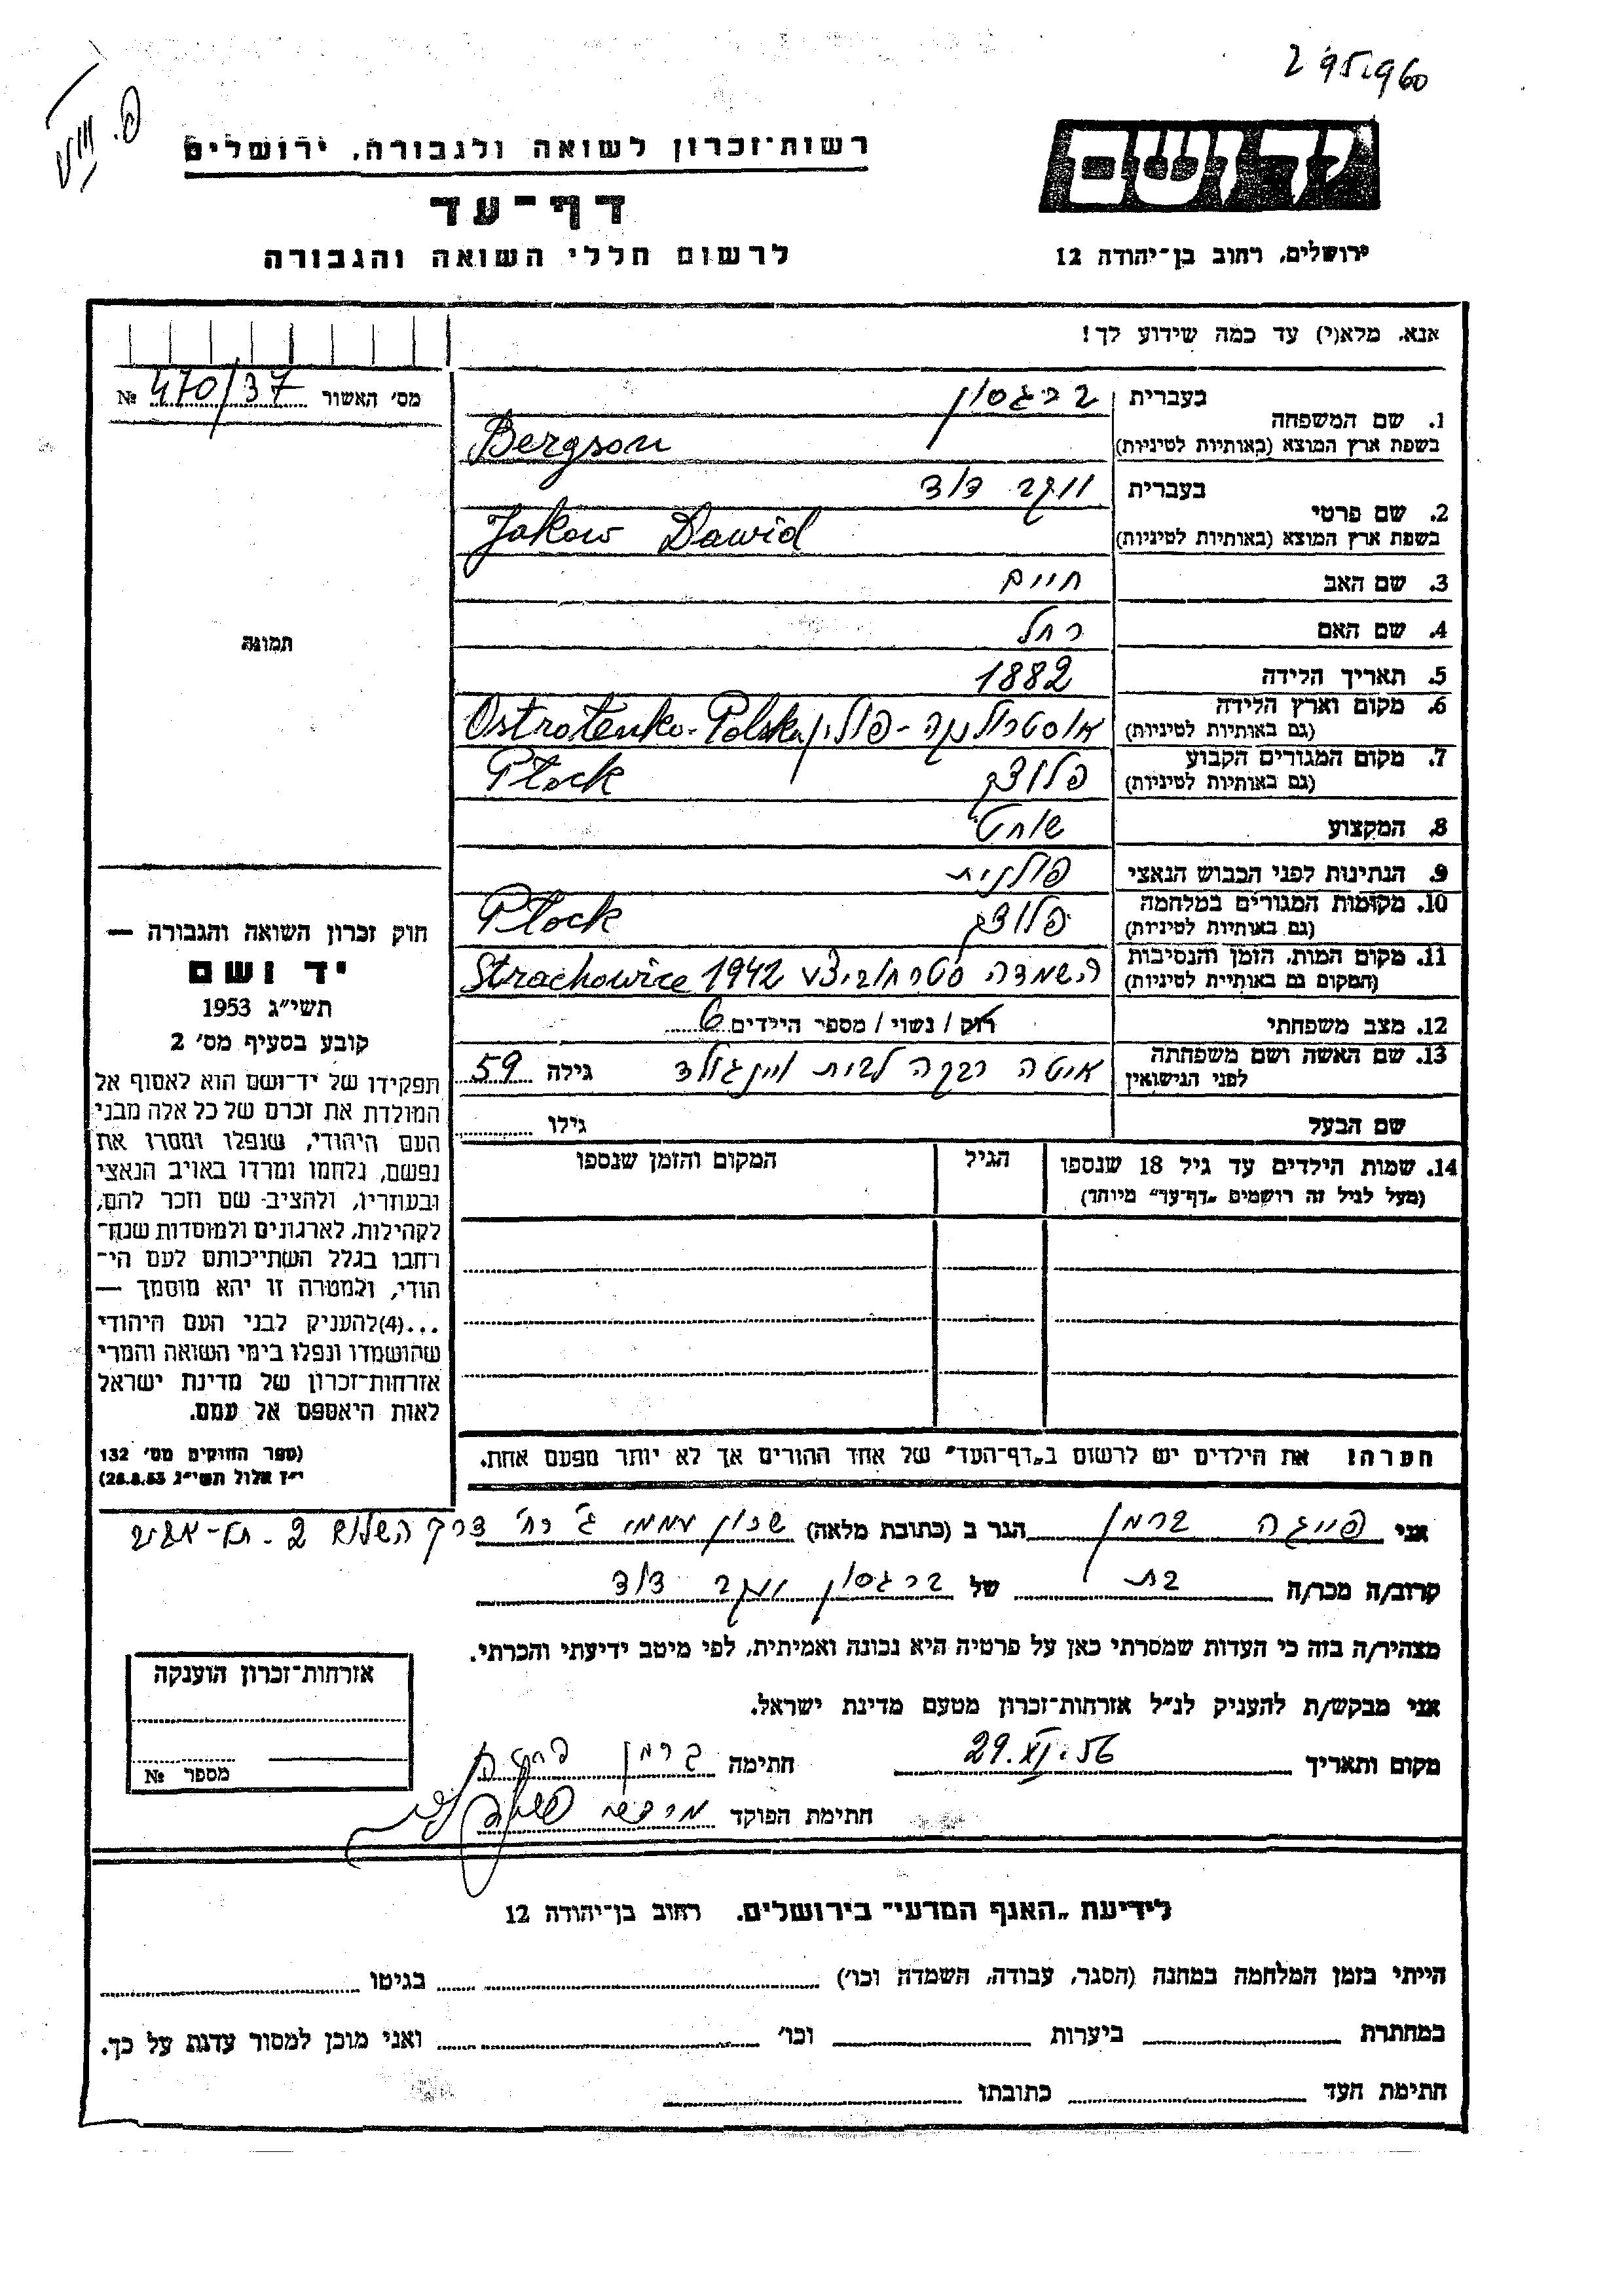 295960
רשות־זכרון לשואה ולגבורה, ירושלים
דף־עד
לרשום חללי השואה והגבורה
יד ושם
ירושלים, רחוב בן־יהודה 12
אנא, מלא(י) עד כמה שידוע לך!
מס׳ האשור 470/37 №
1. שם המשפחה
בעברית ברגסון
בשפת ארץ המוצא (באותיות לטיניות) Bergson
2. שם פרטי
בעברית יעקב דוד
בשפת ארץ המוצא (באותיות לטיניות) Jakow Dawid
3. שם האב חיים
4. שם האם רחל
5. תאריך הלידה 1882
6. מקום וארץ הלידה
(גם באותיות לטיניות) אוסטרולנקה - פולין Ostrotenko-Polska
7. מקום המגורים הקבוע
(גם באותיות לטיניות) פלוצק Płock
8. המקצוע שוחט
9. הנתינות לפני הכבוש הנאצי פולנית
10. מקומות המגורים במלחמה
(גם באותיות לטיניות) פלוצק Płock
11. מקום המות, הזמן והנסיבות
(המקום גם באותיות לטיניות) השמדה סטרחוביצע 1942 Strachowice
12. מצב משפחתי רוק / נשוי / מספר הילדים 6
13. שם האשה ושם משפחתה
לפני הנישואין איטה רבקה לבית ויינגולד גילה 59
שם הבעל גילו
14. שמות הילדים עד גיל 18 שנספו
(מעל לגיל זה רושמים „דף־עד״ מיוחד)
הגיל
המקום והזמן שנספו
תמונה
חוק זכרון השואה והגבורה —
יד ושם
תשי״ג 1953
קובע בסעיף מס׳ 2
תפקידו של יד־ושם הוא לאסוף אל
המולדת את זכרם של כל אלה מבני
העם היהודי, שנפלו ומסרו את
נפשם, נלחמו ומרדו באויב הנאצי
ובעוזריו, ולהציב שם וזכר להם,
לקהילות, לארגונים ולמוסדות שנח־
רחבו בגלל השתייכותם לעם הי־
הודי, ולמטרה זו יהא מוסמך —
...(4) להעניק לבני העם היהודי
שהושמדו ונפלו בימי השואה והמרי
אזרחות־זכרון של מדינת ישראל
לאות היאספם אל עמם.
(ספר החוקים מס׳ 132
י״ז אלול תשי״ג 28.8.53)
הערה! את הילדים יש לרשום ב„דף־העד״ של אחד ההורים אך לא יותר מפעם אחת.
אני פייגה ברמן הגר ב (כתובת מלאה) שכון עממי ג׳ רח׳ דרך השלום 2 - תל-אביב
קרוב/ה מכר/ה בת של ברגסון יעקב דוד
מצהיר/ה בזה כי העדות שמסרתי כאן על פרטיה היא נכונה ואמיתית, לפי מיטב ידיעתי והכרתי.
אני מבקש/ת להעניק לנ״ל אזרחות־זכרון מטעם מדינת ישראל.
מקום ותאריך 29.XI.56 חתימה ברמן
חתימת הפוקד
אזרחות־זכרון הוענקה
מספר №
לידיעת „האגף המדעי״ בירושלים, רחוב בן־יהודה 12
הייתי בזמן המלחמה במחנה (הסגר, עבודה, השמדה וכו׳) בגיטו
במחתרת ביערות וכו׳ ואני מוכן למסור עדות על כך.
חתימת העד כתובתו